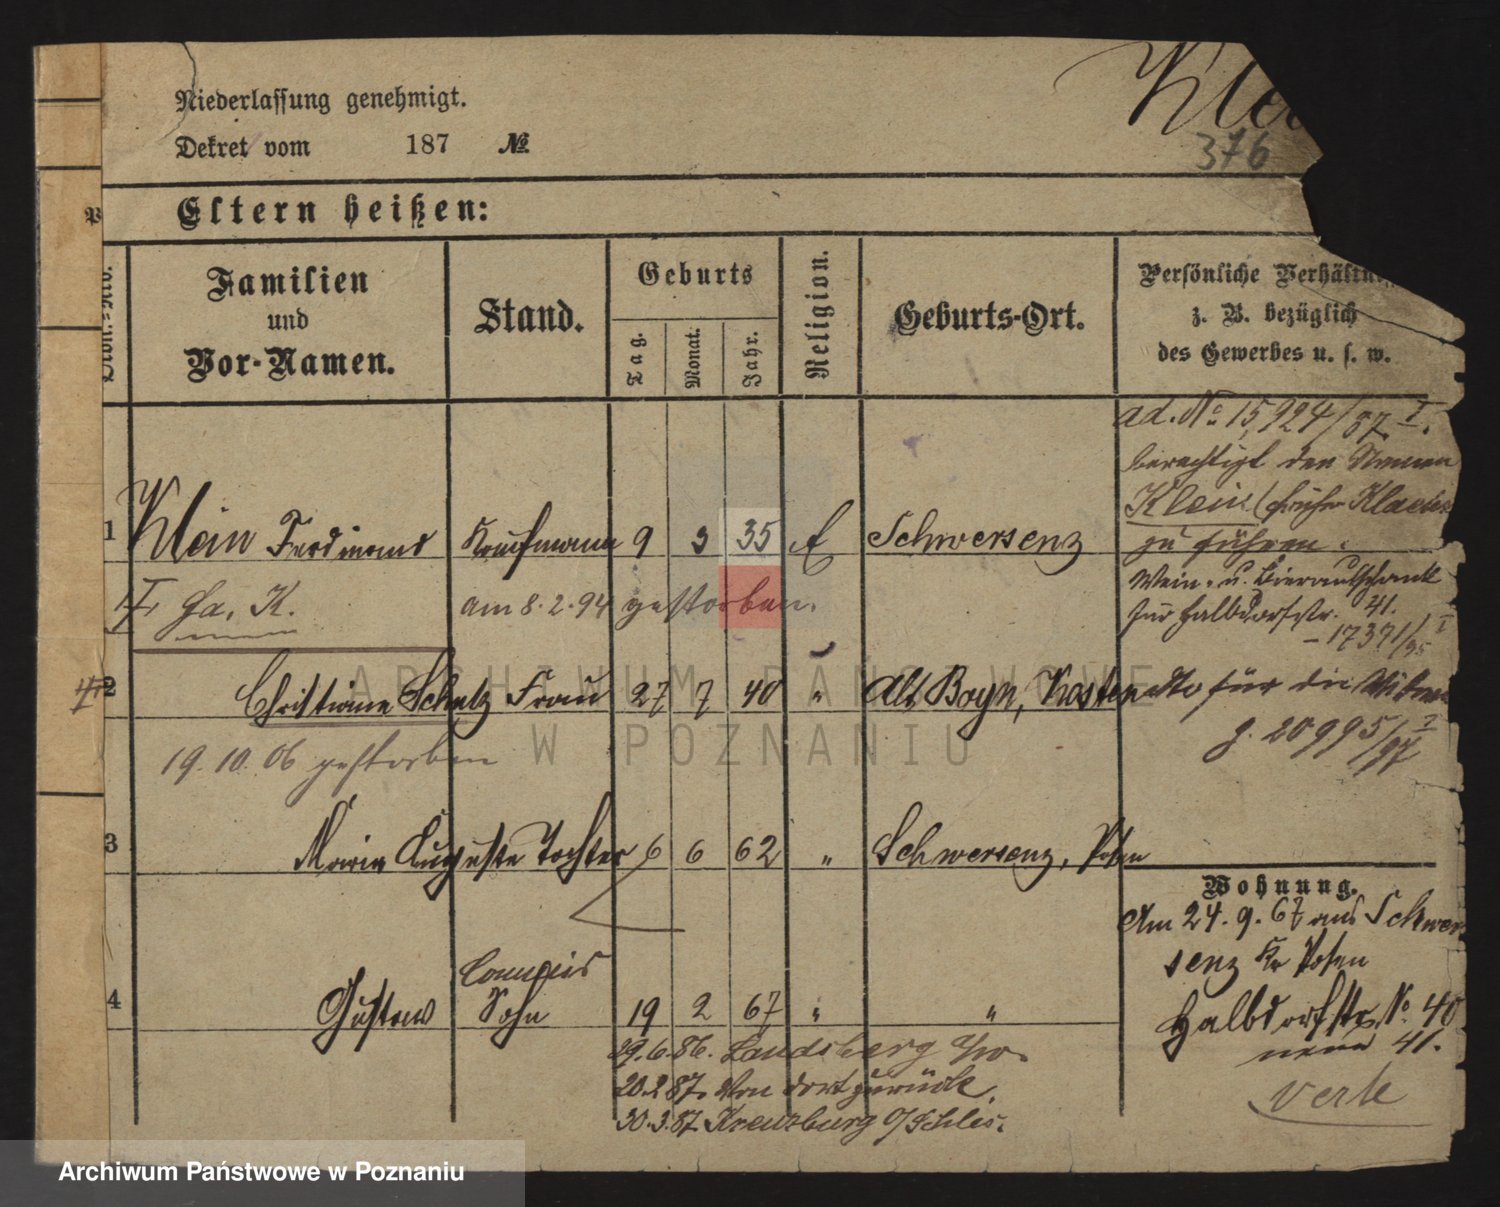 Niederlassung genehmigt.
Dekret vom 187 №
Kle
376
Eltern heißen:
Familien
und
Vor-Namen.
Stand.
Geburts
Tag.
Monat.
Jahr.
Religion.
Geburts-Ort.
Persönliche
z. B. bezüglich
des Gewerbes u. s. w.
ad. No. 15,924/87 I.
berechtigt den Namen
Klein (früher
zu führen.
1 Klein Ferdinand Kaufmann 9 3 35 Schwersenz
Wein- u. Bierausschank
Halbdorfstr. 41.
17371/95 I
am 8.2.94 gestorben.
2 Christiane Schulz Frau 27 7 40 " Alt Boyn, Kosten
dto für die
20995/97 I
19.10.06 gestorben
3 Maria Auguste Tochter 6 6 62 " Schwersenz, Posen
Wohnung.
Am 24.9.67 aus Schwer
senz Kr Posen
Halbdorfstr. No. 40
41.
4 Gustav Sohn 19 2 67 " "
29.6.86. Landsberg
20.2.87. Von dort zurück.
30.3.87. Kreuzburg O/Schles.
ARCHIWUM PAŃSTWOWE
W POZNANIU
Archiwum Państwowe w Poznaniu